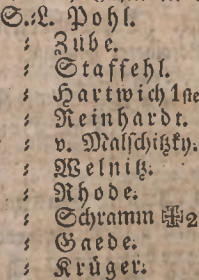 S.:L. Pohl.
: Zübe.
: Staffehl.
: Hartwich 1ste
: Reinhardt.
: v. Malschitzky.
: Welnitz.
: Rhode.
: Schramm ✠2
: Gaede.
: Krüger.